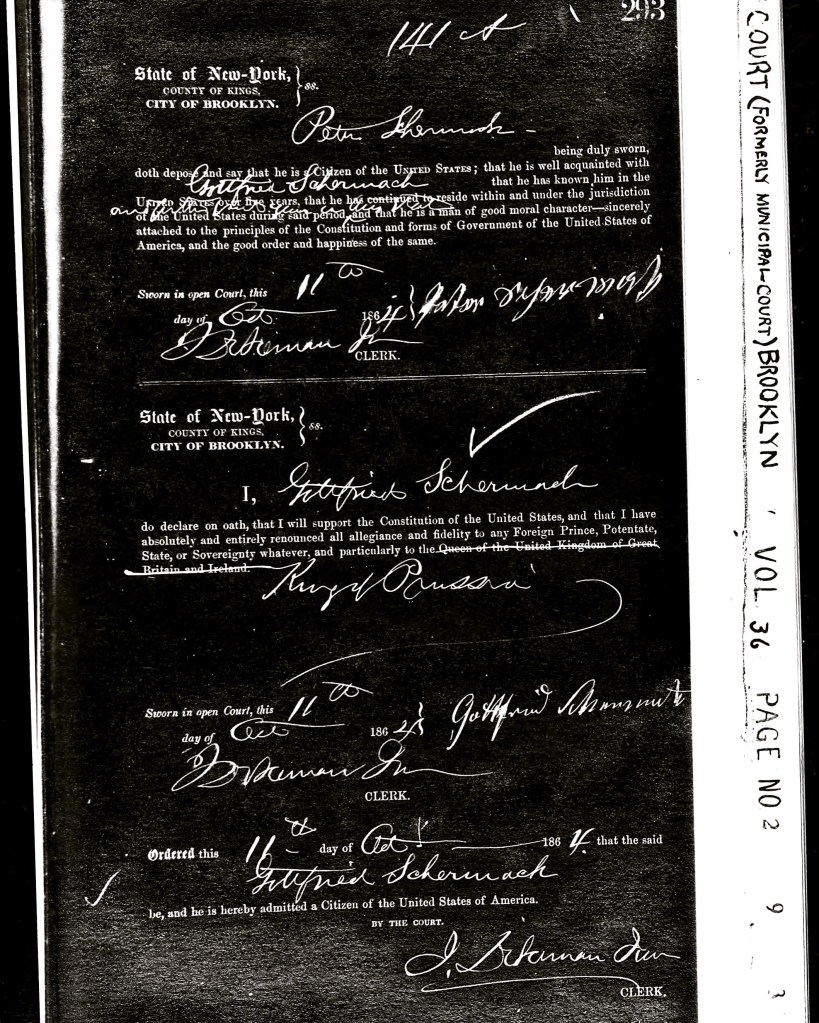 293
141 A
State of New-York,
COUNTY OF KINGS,
CITY OF BROOKLYN.
} ss.
Peter Schermack
being duly sworn,
doth depose and say that he is a Citizen of the UNITED STATES; that he is well acquainted with
Gottfried Schermach
that he has known him in the
United States over five years, that he has continued to reside within and under the jurisdiction
of the United States during said period, and that he is a man of good moral character—sincerely
attached to the principles of the Constitution and forms of Government of the United States of
America, and the good order and happiness of the same.
Sworn in open Court, this 11th
day of Oct. 1864 }
CLERK.
State of New-York,
COUNTY OF KINGS,
CITY OF BROOKLYN.
} ss.
I, Gottfried Schermach
do declare on oath, that I will support the Constitution of the United States, and that I have
absolutely and entirely renounced all allegiance and fidelity to any Foreign Prince, Potentate,
State, or Sovereignty whatever, and particularly to the Queen of the United Kingdom of Great
Britain and Ireland.
King of Prussia
Sworn in open Court, this 11th
day of Oct 1864 } Gottfried
CLERK.
Ordered this 11th day of Oct 1864 that the said
Gottfried Schermack
be, and he is hereby admitted a Citizen of the United States of America.
BY THE COURT.
CLERK.
COURT (FORMERLY MUNICIPAL COURT) BROOKLYN, VOL. 36 PAGE NO 293